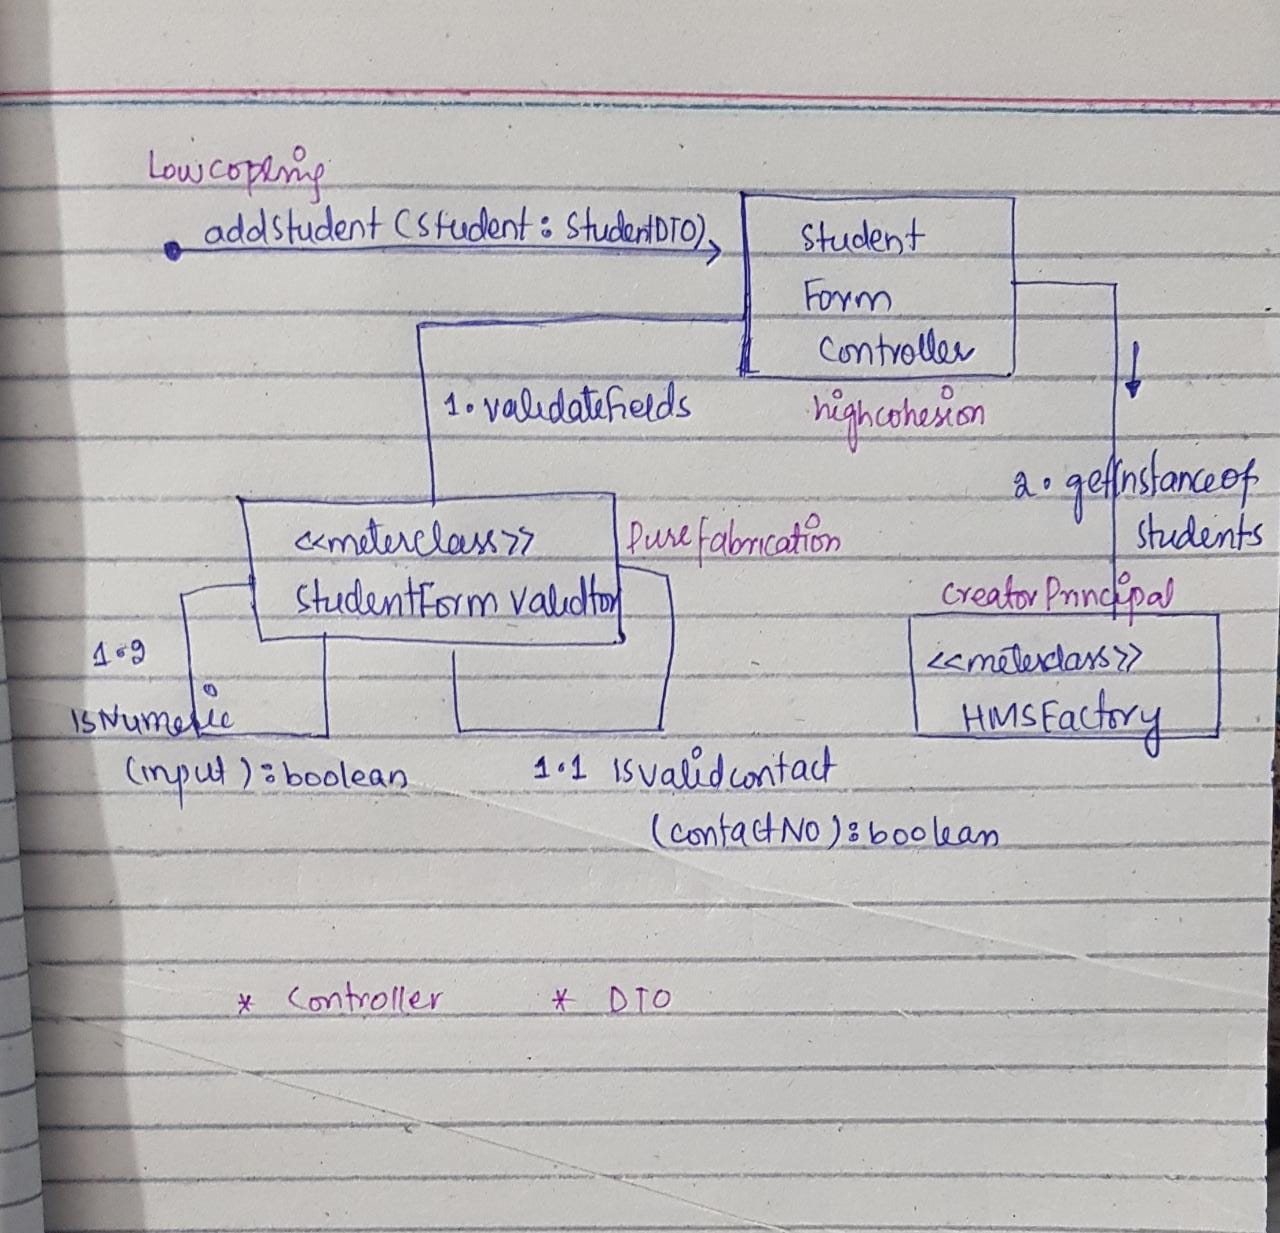 Lowcopling
addstudent (student: StudentDTO)
Student
Form
Controller
highcohesion
1. validatefields
2. getinstanceof
students
<<meterclass>>
StudentForm Validtor
Pure fabrication
creator Principal
<<meterclass>>
HMSFactory
1.2
isNumeric
(input): boolean
1.1 isvalidcontact
(contactNO): boolean
* Controller * DTO